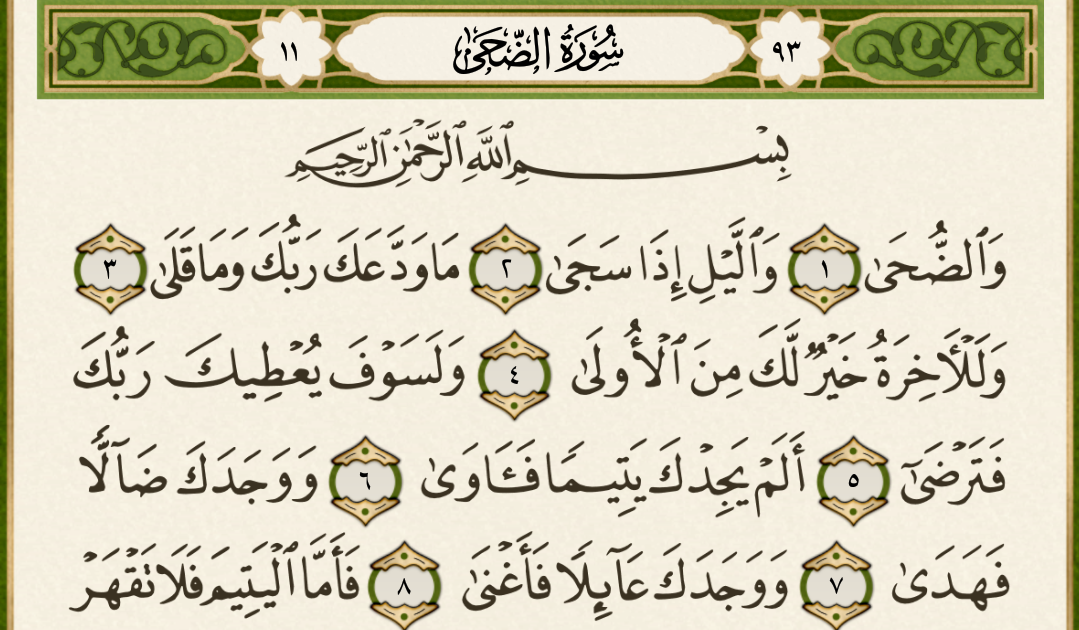 ٩٣ سُورَةُ الضُّحَىٰ ١١
بِسْمِ ٱللَّهِ ٱلرَّحْمَٰنِ ٱلرَّحِيمِ
وَٱلضُّحَىٰ ١ وَٱلَّيْلِ إِذَا سَجَىٰ ٢ مَا وَدَّعَكَ رَبُّكَ وَمَا قَلَىٰ ٣
وَلَلْـَٔاخِرَةُ خَيْرٌ لَّكَ مِنَ ٱلْأُولَىٰ ٤ وَلَسَوْفَ يُعْطِيكَ رَبُّكَ
فَتَرْضَىٰٓ ٥ أَلَمْ يَجِدْكَ يَتِيمًا فَـَٔاوَىٰ ٦ وَوَجَدَكَ ضَآلًّا
فَهَدَىٰ ٧ وَوَجَدَكَ عَآئِلًا فَأَغْنَىٰ ٨ فَأَمَّا ٱلْيَتِيمَ فَلَا تَقْهَرْ